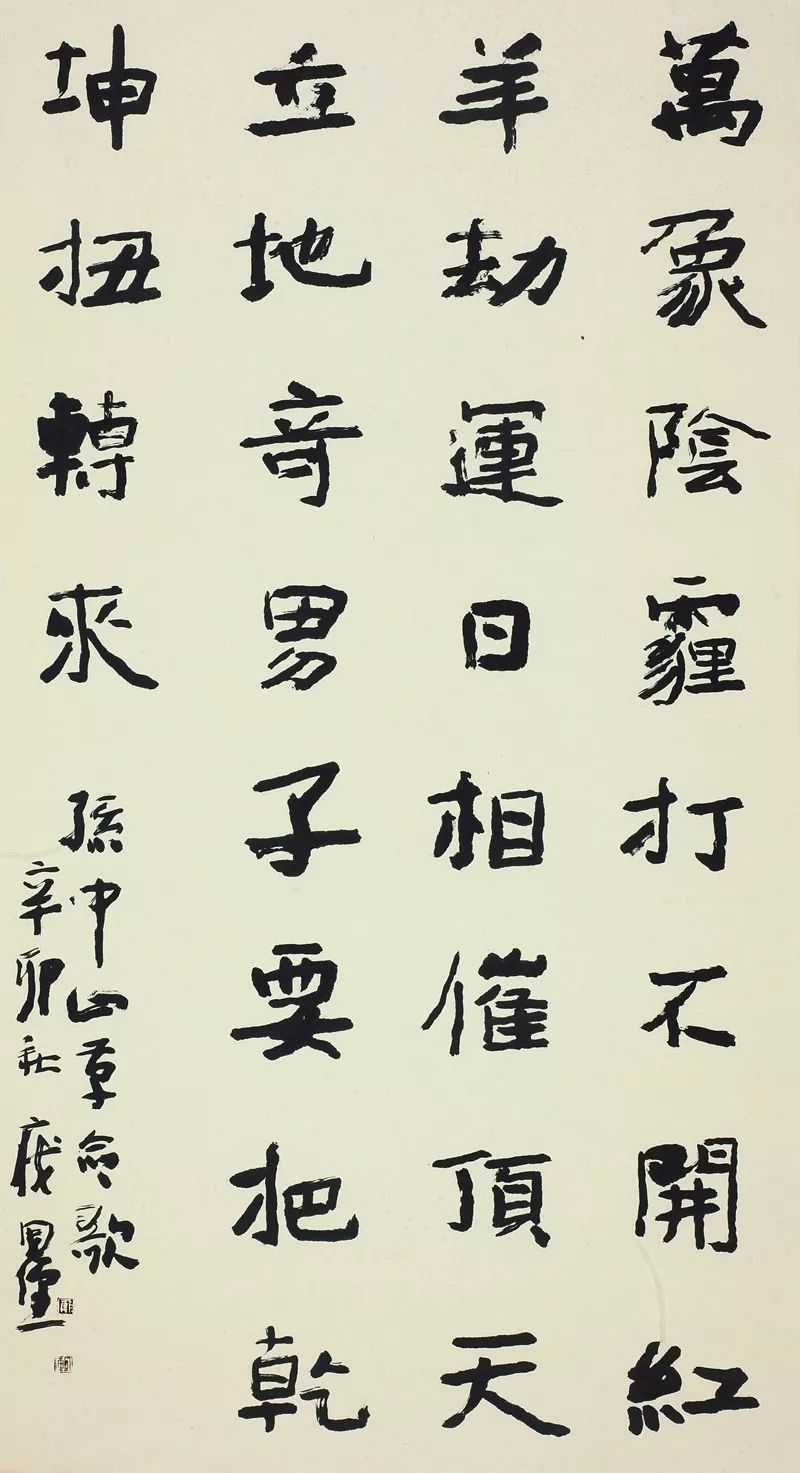 萬象陰霾打不開紅
羊劫運日相催頂天
立地奇男子要把乾
坤扭轉來
孫中山革命歌
辛卯秋